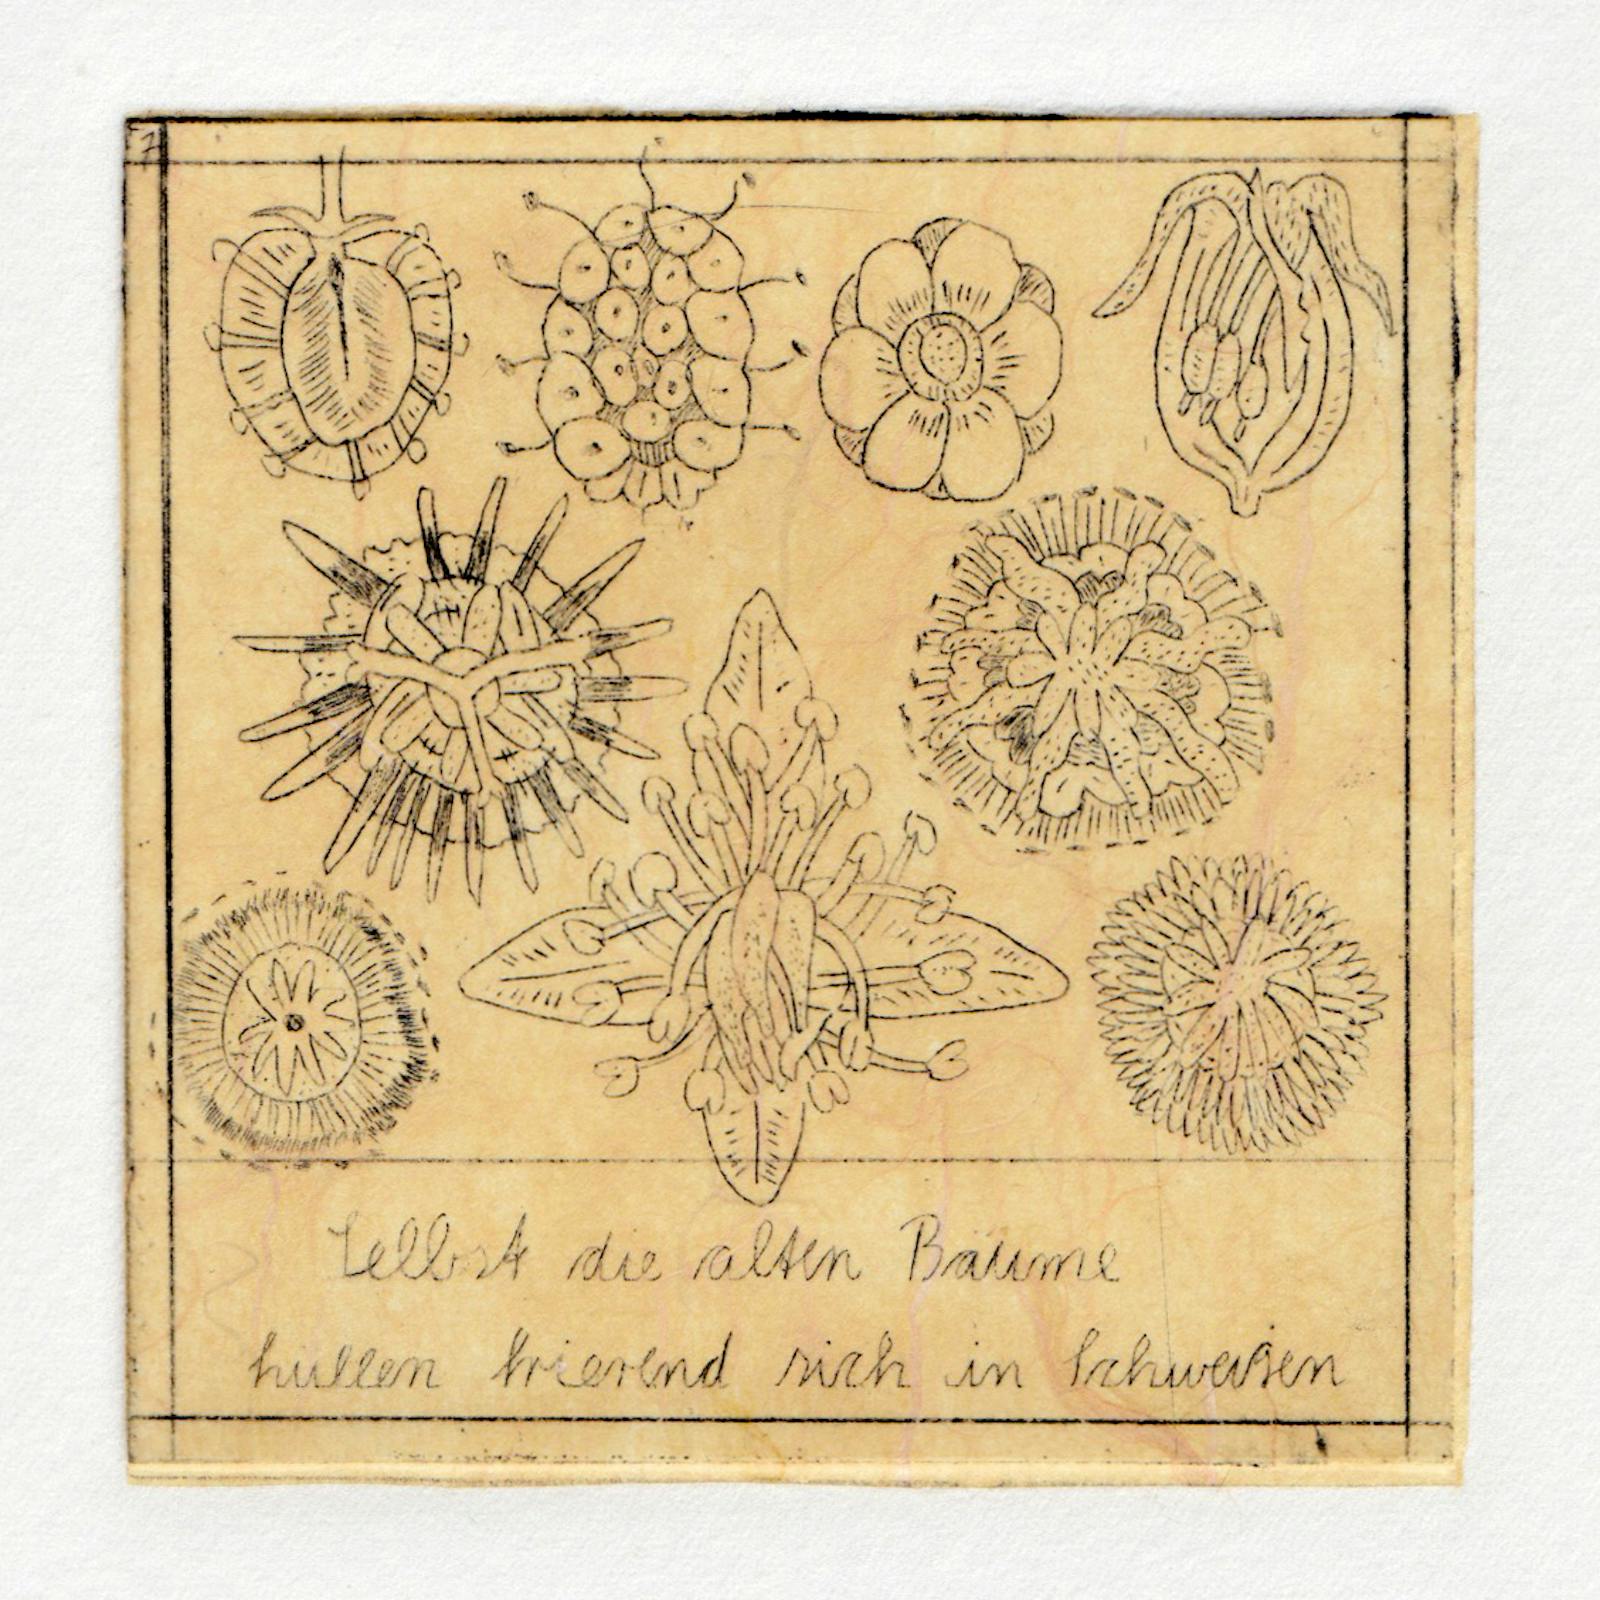 7
Selbst die alten Bäume
hüllen frierend sich in Schweigen